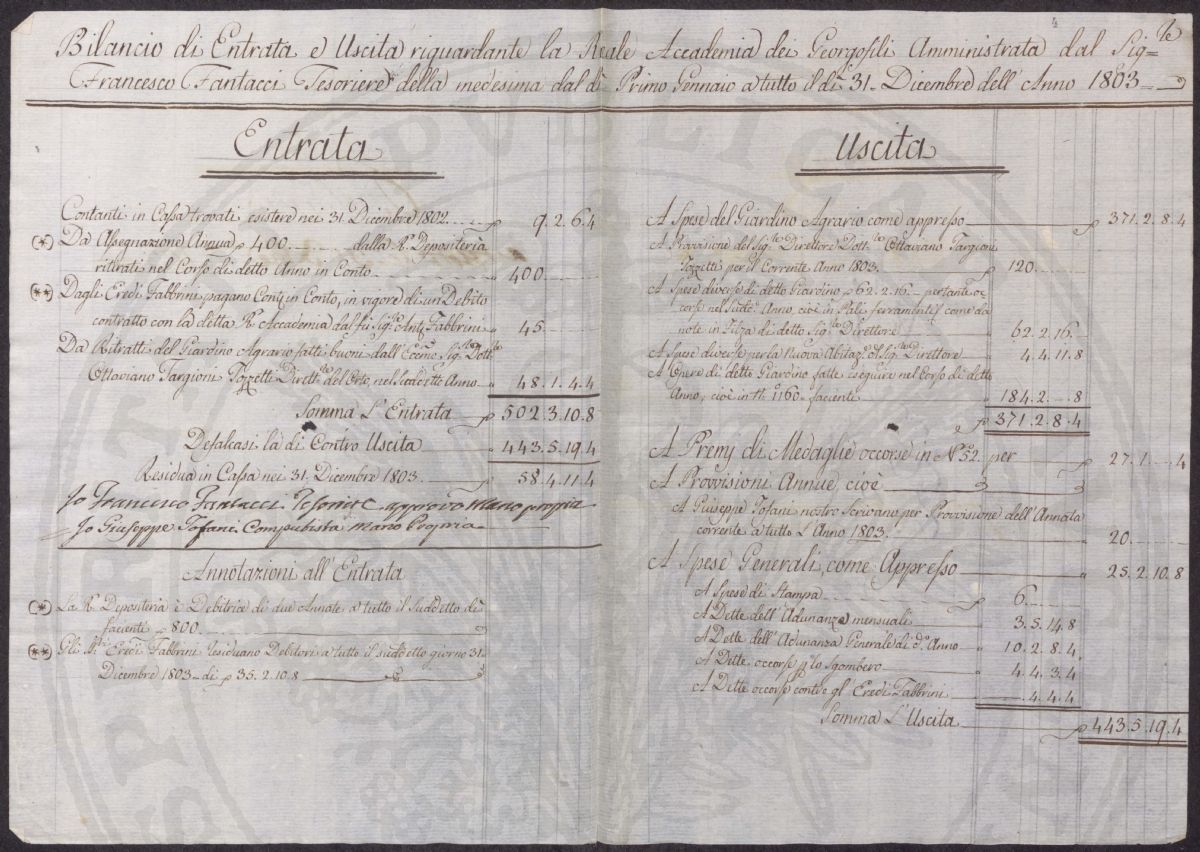 4
Bilancio di Entrata e Uscita riguardante la Reale Accademia dei Georgofili Amministrata dal Sig=re
Francesco Fantacci Tesoriere della medesima dal dì Primo Gennaio a tutto il dì 31. Dicembre dell'Anno 1803
Entrata
Contanti in Cassa trovati esistere nei 31. Dicembre 1802. 9. 2. 6. 4
(*) Da Assegnazione Annua p 400. dalla R. Depositeria
ritirati nel Corso di detto Anno in Conto 400
(**) Dagli Eredi Fabbrini, pagano Conti in Conto, in vigore di un Debito
contratto con la detta R. Accademia dal fù Sig.re Ant. Fabbrini 45
Da Ritratti del Giardino Agrario fatti buoni dall' Eccmo Sig.re Dott.re
Ottaviano Targioni Tozzetti Dirett.re del Orto, nel sudetto Anno 48. 1. 4. 4
Somma L'Entrata p 502. 3. 10. 8
Defalcasi la di Contro Uscita 443. 5. 19. 4
Residua in Cassa nei 31. Dicembre 1803. p 58. 4. 11. 4
Jo Francesco Fantacci Tesorire approvo Mano propria
Jo Giuseppe Tofani Computista Mano Propria
Annotazioni all'Entrata
(*) La R. Depositeria è Debitrice di due Annate a tutto il suddetto dì
facienti p 800.
(**) Gli Sri Eredi Fabbrini residuano Debitori a tutto il suddetto giorno 31.
Dicembre 1803 di p 35. 2. 10. 8
Uscita
A Spese del Giardino Agrario come appresso p 371. 2. 8. 4
A Provvisione del Sig.re Direttore Dott.re Ottaviano Targioni
Tozzetti per il Corrente Anno 1803. p 120.
A Spese diverse di detto Giardino p 62. 2. 16. pertante oc
corse nel sudo. Anno, cioè in Pali, ferramenti come da
note in Filza di detto Sig.re Direttore 62. 2. 16.
A Spese diverse per la Nuova Abitaz. del Sig.re Direttore 4. 4. 11. 8
A Opere di detto Giardino fatte eseguire nel Corso di detto
Anno, cioè in N. 1160. faciente 184. 2. 8
p 371. 2. 8. 4
A Premj di Medaglie occorse in No. 52. per 27. 1. 4
A Provvisioni Annue, cioè
A Giuseppe Tofani nostro Scrivano per Provvisione dell'Annata
corrente a tutto L'Anno 1803. 20.
A Spese Generali, come Appresso 25. 2. 10. 8
A Spese di Stampa 6.
A Dette dell'Adunanze mensuali 3. 5. 14. 8
A Dette dell'Adunanza Generale di do. Anno 10. 2. 8. 4
A Dette occorse p lo Sgombero 4. 4. 3. 4
A Dette occorse contro gl'Eredi Fabbrini 4. 4. 4
Somma L'Uscita p 443. 5. 19. 4